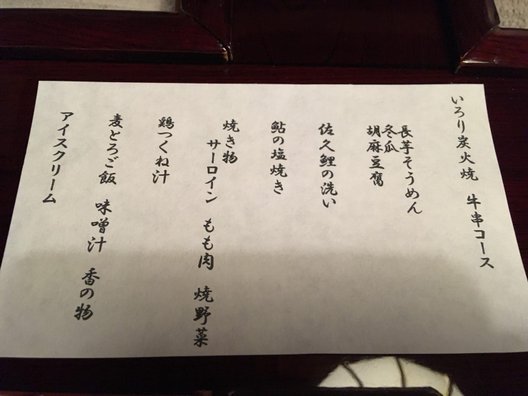 いろり炭火焼　牛串コース
長芋そうめん
冬瓜
胡麻豆腐
佐久鯉の洗い
鮎の塩焼き
焼き物
サーロイン　もも肉　焼野菜
鶏つくね汁
麦とろご飯　味噌汁　香の物
アイスクリーム